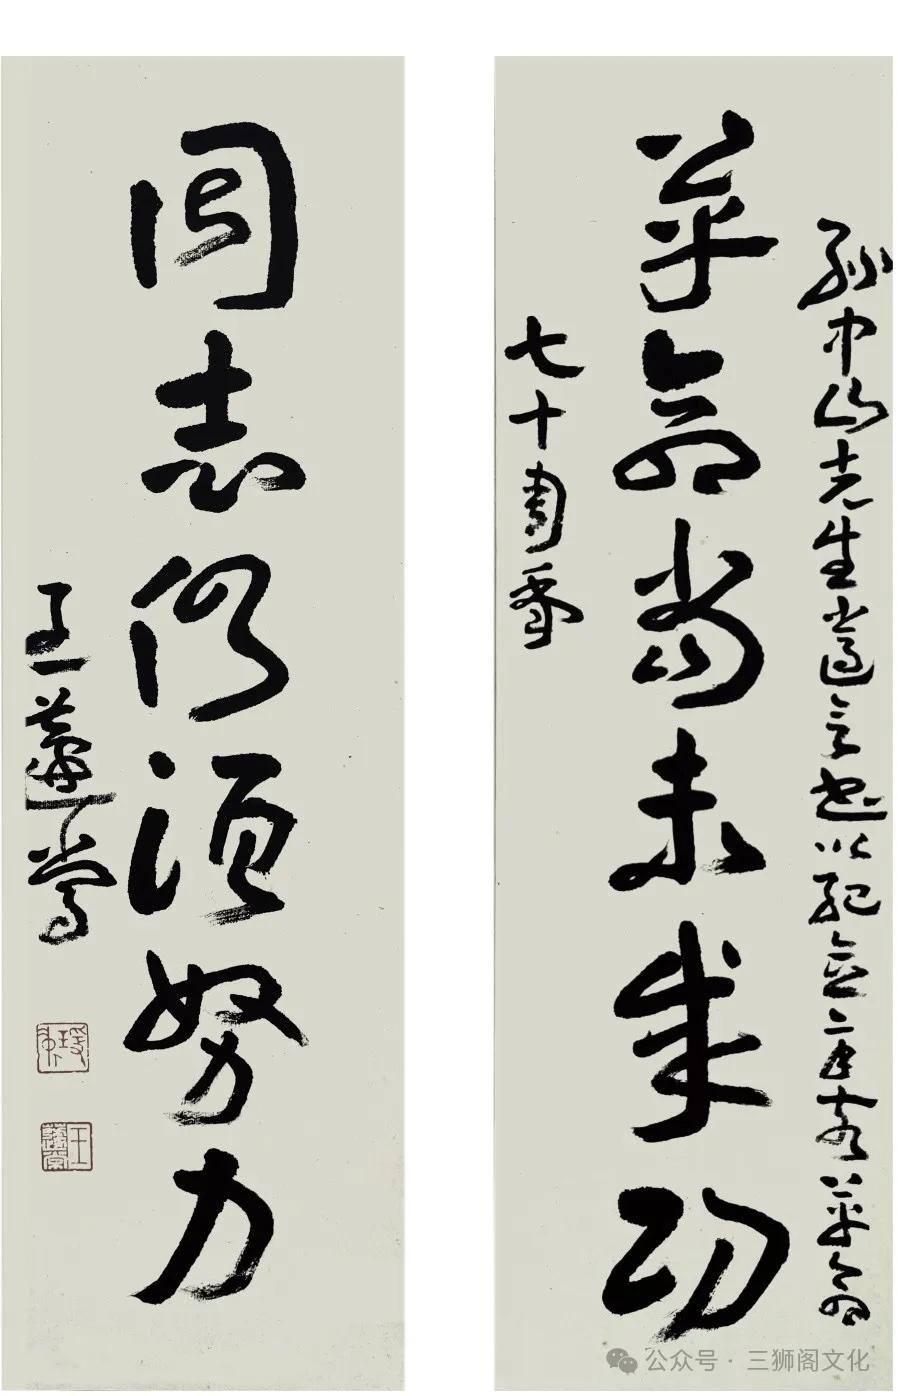 孙中山先生遗言书以纪念辛亥革命
革命尚未成功
七十周年
同志仍须努力
王蘧常
王蘧常
公众号·三狮阁文化